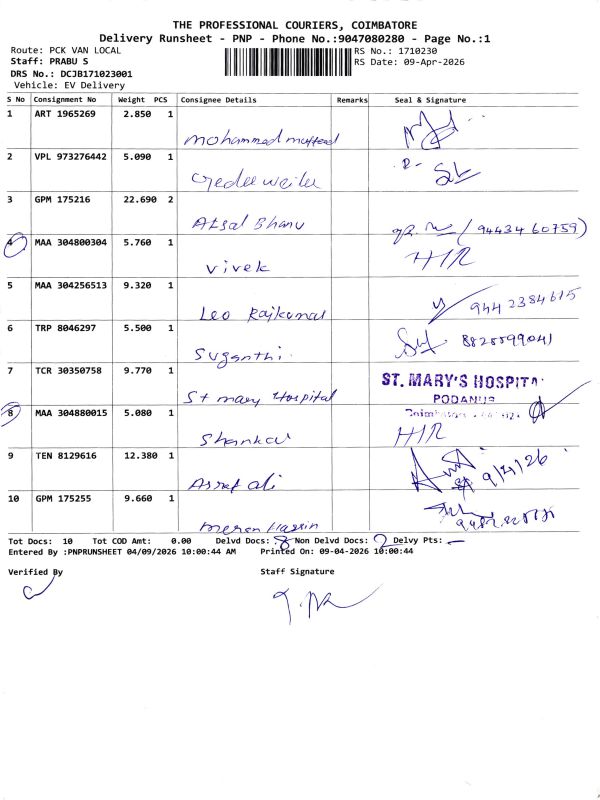 THE PROFESSIONAL COURIERS, COIMBATORE
Delivery Runsheet - PNP - Phone No.:9047080280 - Page No.:1
Route: PCK VAN LOCAL
RS No.: 1710230
Staff: PRABU S
RS Date: 09-Apr-2026
DRS No.: DCJB171023001
Vehicle: EV Delivery
S No Consignment No Weight PCS Consignee Details Remarks Seal & Signature
1 ART 1965269 2.850 1
mohammed
2 VPL 973276442 5.090 1
3 GPM 175216 22.690 2
Afsal Bhanu (94434 60759)
4 MAA 304800304 5.760 1
vivek H/R
5 MAA 304256513 9.320 1
Leo Rajkumar 944 2384615
6 TRP 8046297 5.500 1
Suganthi
7 TCR 30350758 9.770 1
St mary Hospital
ST. MARY'S HOSPITAL
PODANUR
8 MAA 304880015 5.080 1
Shankar H/R
9 TEN 8129616 12.380 1
Asraf ali 9/4/26
10 GPM 175255 9.660 1
Tot Docs: 10 Tot COD Amt: 0.00 Delvd Docs: 8 Non Delvd Docs: 2 Delvy Pts: —
Entered By :PNPRUNSHEET 04/09/2026 10:00:44 AM Printed On: 09-04-2026 10:00:44
Verified By Staff Signature